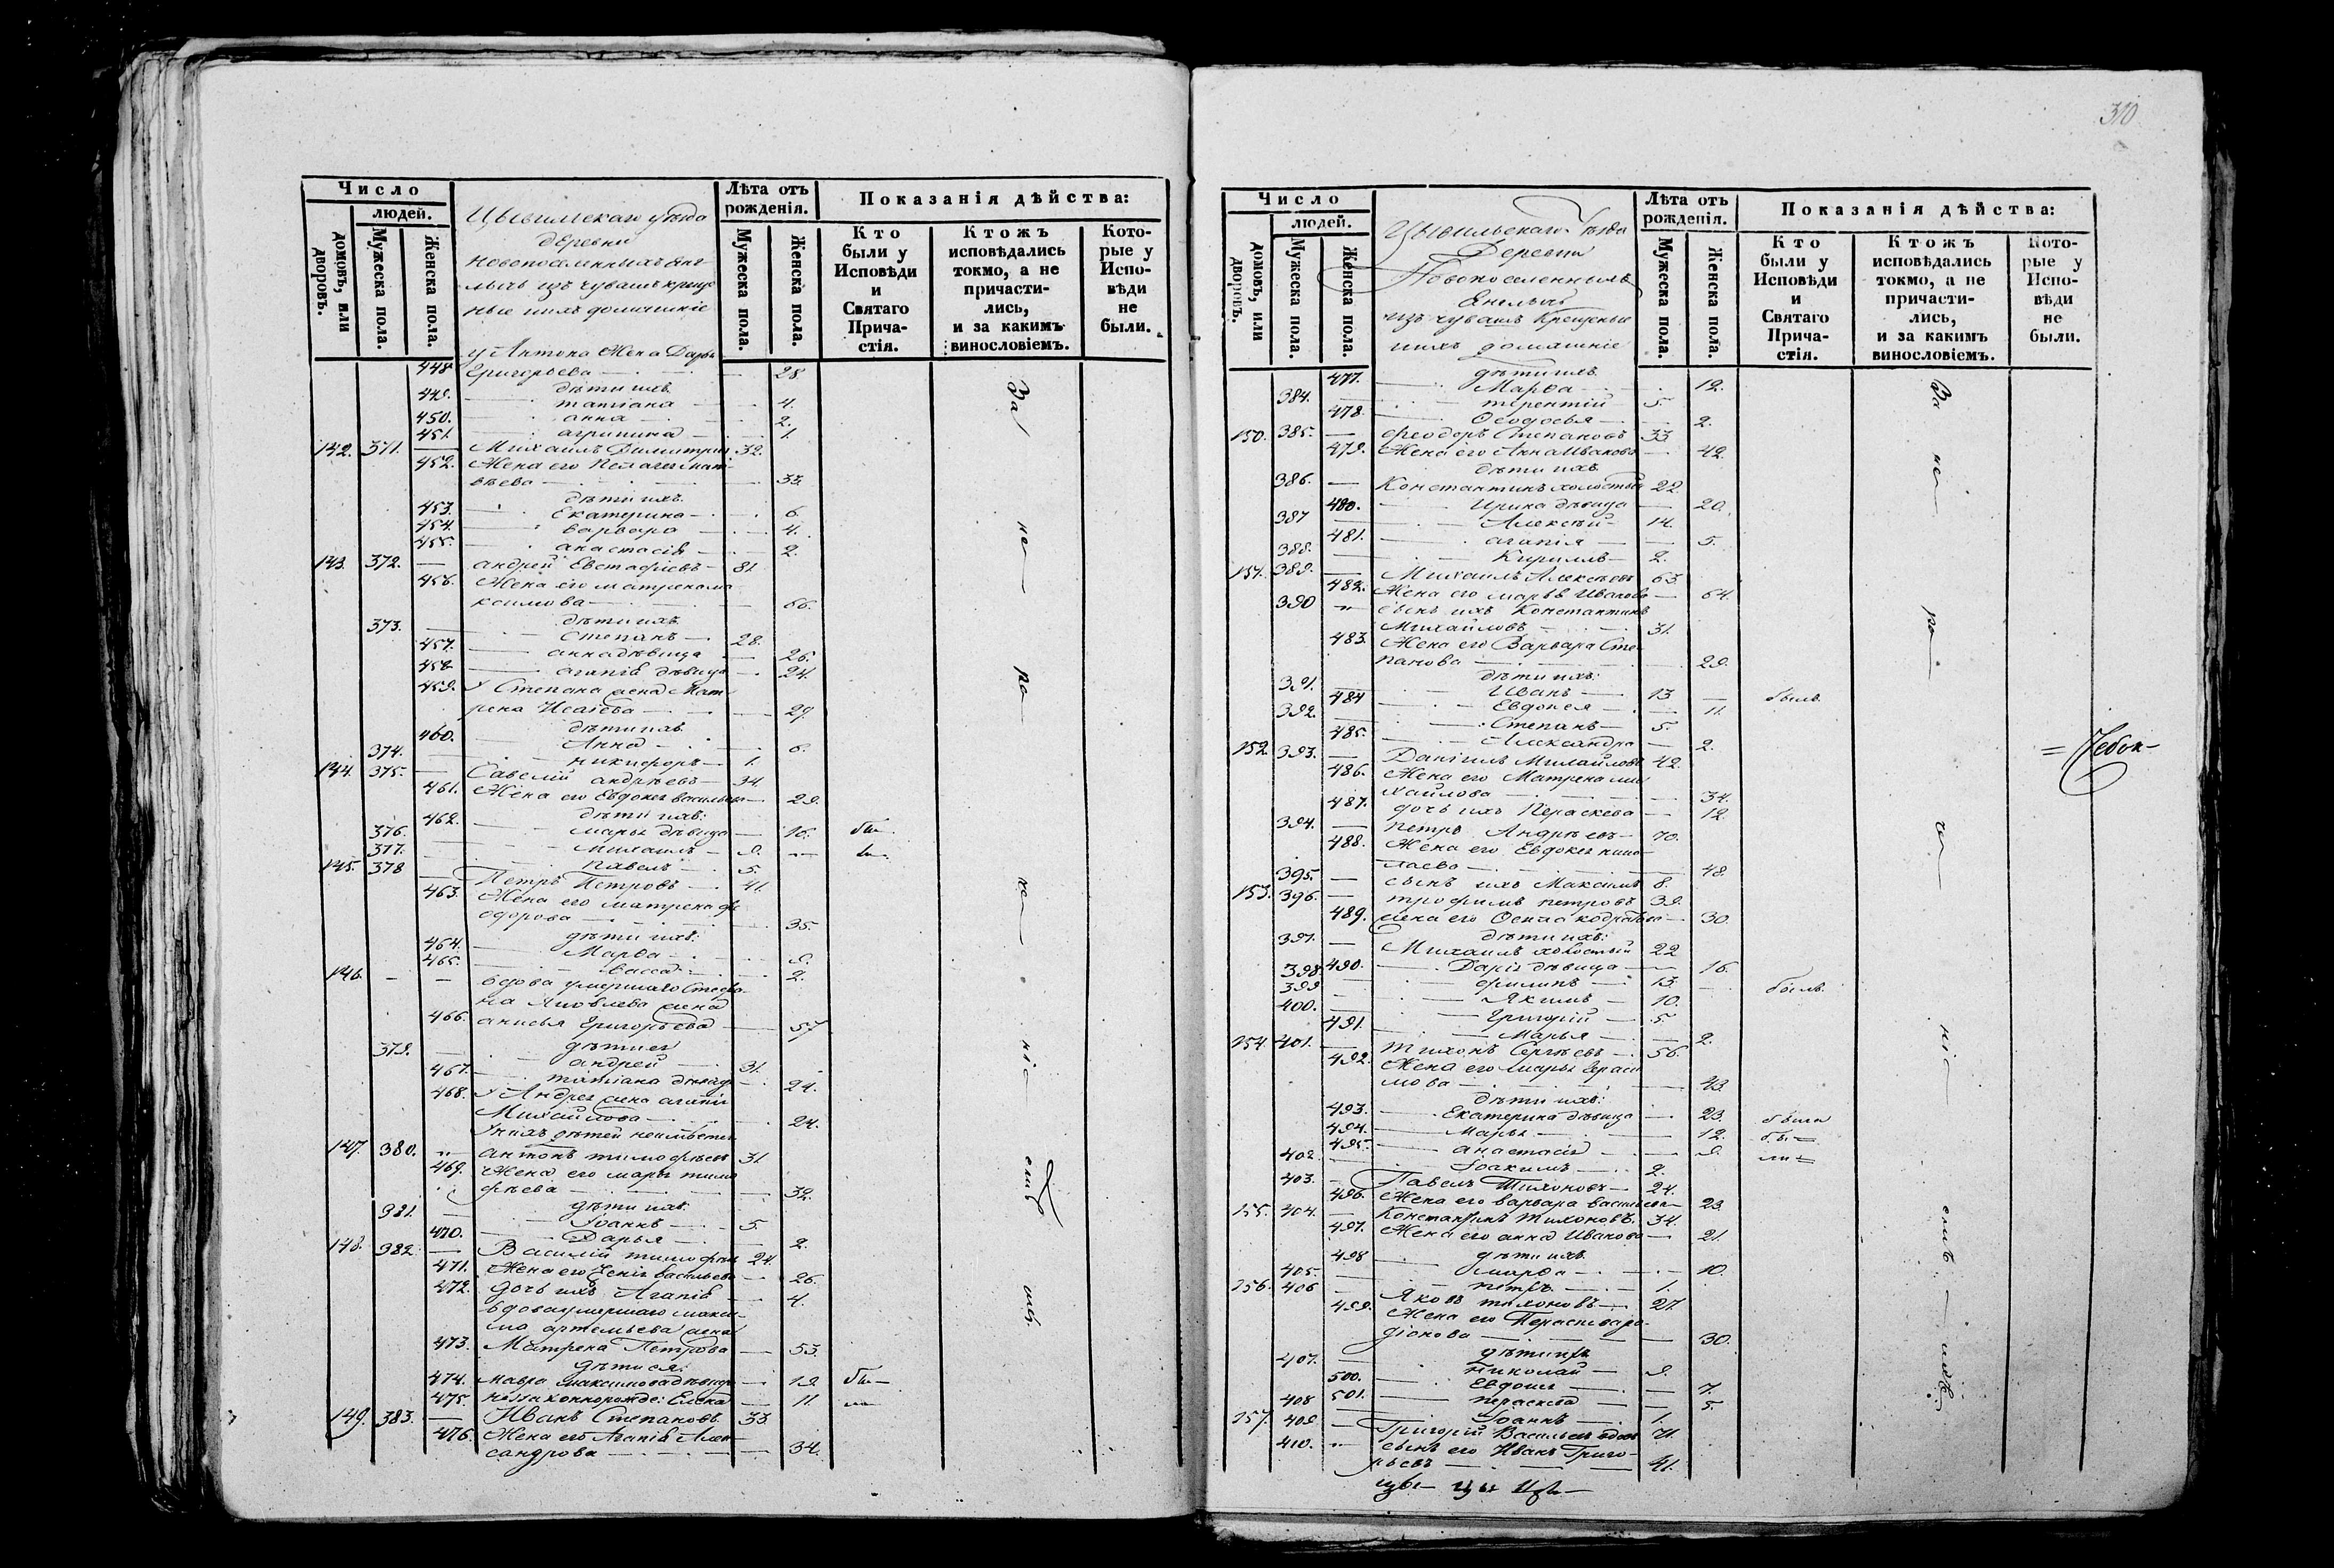 Число
людей.
домовъ, или дворовъ.
Мужеска пола.
Женска пола.
Лѣта отъ рожденія.
Мужеска пола.
Женска пола.
Показанія дѣйства:
Кто были у Исповѣди и Святаго Прича-стія.
Ктожъ исповѣдались токмо, а не причасти-лись, и за какимъ винословіемъ.
Кото-рые у Испо-вѣди не были.
деревни
изъ чувашъ
нихъ домашніе
у Антона Жена Дарья
448 Григорьева 28
дѣти ихъ
449. татіана 4.
450. анна 2.
451. агрипина 1.
142. 371. Михаилъ Димитріевъ 32.
452. Жена его Пелагея Мат-
вѣева 33.
дѣти ихъ
453. Екатерина 6.
454. варвара 4.
455. анастасія 2.
143. 372. андрей Евстафіевъ 81.
456. Жена его матрена ма
ксимова 66.
дѣти ихъ
373. Степанъ 28.
457. анна дѣвица 26.
458 агапія дѣвица 24.
459. у Степана жена Мат
рена Исаева 29.
дѣти ихъ
460. Анна 6.
374. никифоръ 1.
144. 375. Савелій андрѣевъ 34.
461. Жена его Евдокія васильева 29.
дѣти ихъ:
462. марья дѣвица 16.
376. михаилъ 9.
377. павелъ 5.
145. 378 Петръ Петровъ 41.
463. Жена его матрена фе
одорова 35.
дѣти ихъ:
464. Марфа 9.
465. васса 2.
146. вдова умершаго Стефа-
на Яковлева жена
466. анисья Григорьева 57
дѣти ея
379. андрей 31.
467. татіана дѣвица 24.
468. у Андрея жена агапія
Михайлова 24.
147. 380. антонъ тимофѣевъ 31
469. Жена его марья тимо
фѣева 32.
дѣти ихъ
381. Іоаннъ 5.
470. Дарья 2.
148. 382 Василій тимофѣевъ 24.
471. Жена его васильева 26.
472. дочь ихъ Агапія 4.
вдова умершаго макси-
ма артемьева жена
473. Матрена Петрова 53.
дѣти ея:
474. мавра максимова дѣвица 19
475. Елена 11.
149. 383. Иванъ Степановъ 33
476. Жена его Агапія Алек-
сандрова 34.
За не ра че ніс
310
Число
людей.
домовъ, или дворовъ.
Мужеска пола.
Женска пола.
Лѣта отъ рожденія.
Мужеска пола.
Женска пола.
Показанія дѣйства:
Кто были у Исповѣди и Святаго Прича-стія.
Ктожъ исповѣдались токмо, а не причасти-лись, и за какимъ винословіемъ.
Кото-рые у Испо-вѣди не были.
Цывильскаго уѣзда
Деревни
Новопоселенныхъ
изъ чувашъ Крещеные
нихъ домашніе
дѣти ихъ
477. Марфа 12.
384. терентій 5.
478. Ѳеодосья 2.
150. 385. Феодоръ Степановъ 33
479. Жена его Анна Иванова 42.
дѣти ихъ
386. Константинъ холостый 22
480. Ирина дѣвица 20.
387 Алексѣй 14.
481. агапія 5.
388. Кириллъ 2.
151. 389. Михаилъ Алексѣевъ 63
482. Жена его марья Иванова 64.
390 сынъ ихъ Константинъ
Михайловъ 31.
483. Жена его Варвара Сте-
панова 29.
дѣти ихъ:
391. Иванъ 13 былъ
484 Евдокея 11.
392. Степанъ 5.
485. Александра 2.
152. 393. Даніилъ Михайловъ 42.
486. Жена его Матрена ми
хайлова 34.
487. дочь ихъ Пераскева 12.
394. петръ Андрѣевъ 70.
488. Жена его Евдокея нико-
лаева 48.
395. сынъ ихъ Максимъ 8.
153. 396. трофимъ петровъ 39.
489. жена его 30.
дѣти ихъ:
397. Михаилъ холостый 22
490. Дарія дѣвица 16.
398 филипъ 13. былъ
399 Якимъ 10.
400. Григорій 5.
491. Марья 2.
154 401. тихонъ Сергѣевъ 56.
492. Жена его марья Гераси
мова 43
дѣти ихъ:
493. Екатерина дѣвица 23. была
494. Марья 12.
495. анастасія 9.
402. Іоакимъ 2.
403. Павелъ Тихоновъ 24.
496. Жена его варвара васильева 23
155. 404. Константинъ тихоновъ. 34.
497. Жена его анна Иванова 21.
дѣти ихъ
498 марфа 10.
405. петръ 1.
156. 406 Яковъ тихоновъ 27
499. Жена его Пераскева ро-
діонова 30.
дѣти ихъ
407. николай 9.
500. Евдокія 7.
501. пераскева 5.
408 Іоаннъ 1.
157. 409. Григорій Васильевъ вдовъ 71.
410. сынъ его Иванъ Григо-
рьевъ 41.
За не ра че ніс